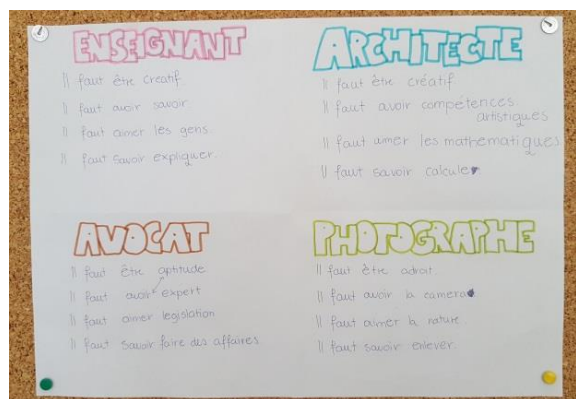 ENSEIGNANT
Il faut être creatif.
Il faut avoir savoir
Il faut aimer les gens.
Il faut savoir expliquer.
ARCHITECTE
Il faut être créatif
Il faut avoir compétences
artistiques
Il faut aimer les mathematiques
Il faut savoir calculer
AVOCAT
Il faut être aptitude
Il faut avoir expert
Il faut aimer legislation
Il faut savoir faire des affaires
PHOTOGRAPHE
Il faut être adroit.
Il faut avoir la camera
Il faut aimer la nature.
Il faut savoir enlever.